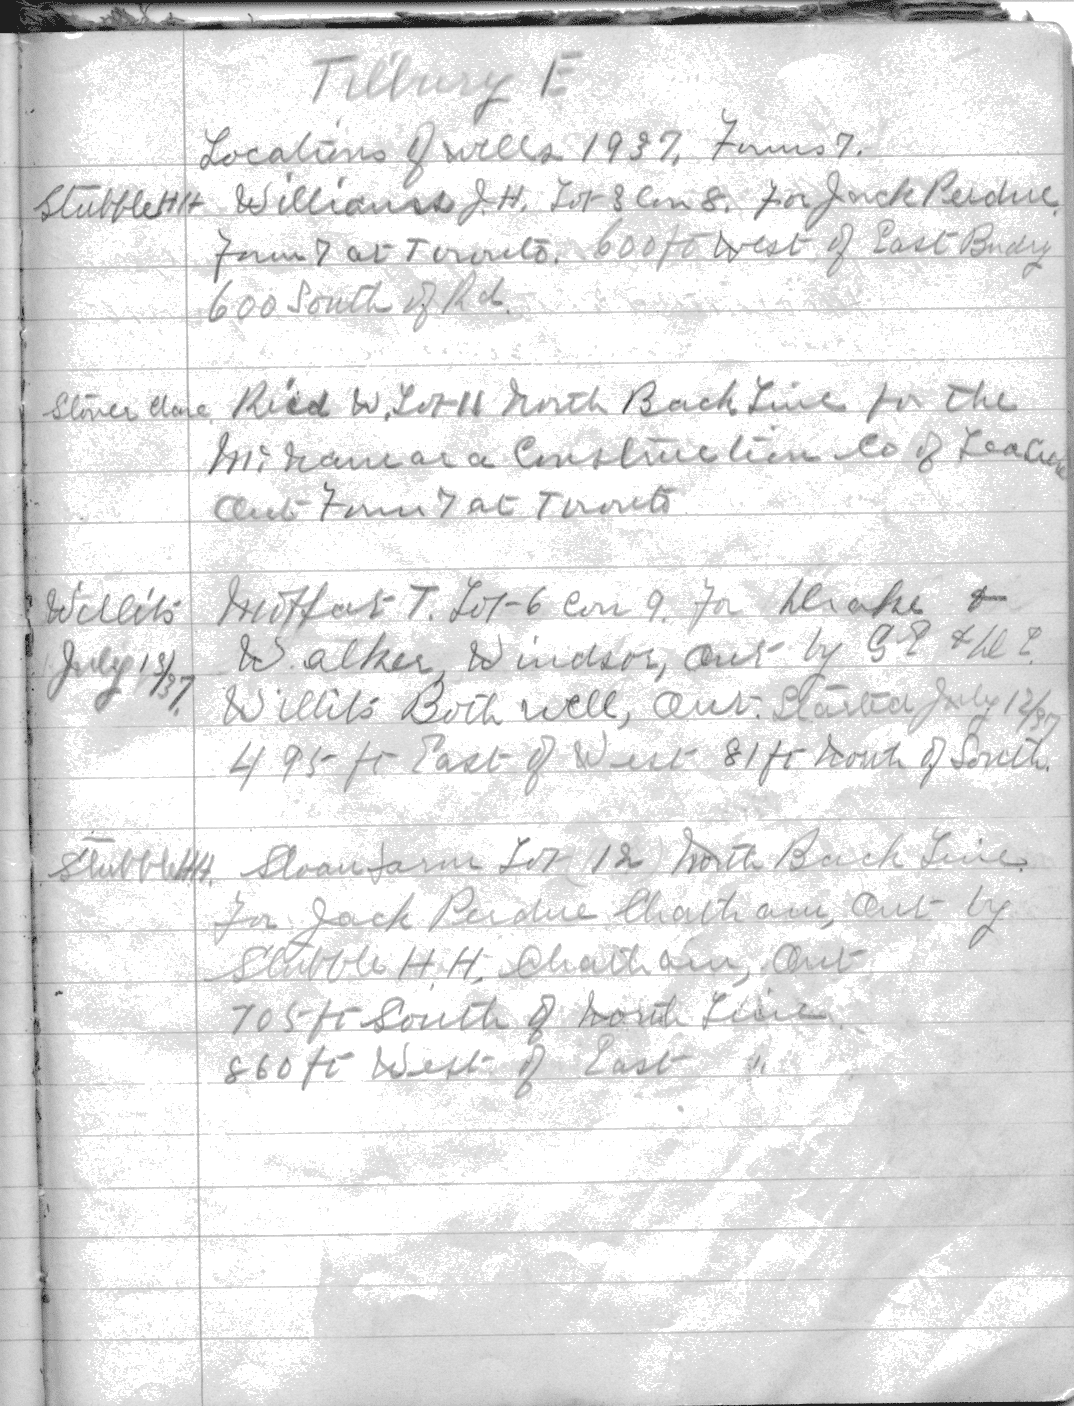 Tilbury E
Locations of wells 1937, Forms 7.
Stubble H H Williams J. H. Lot 3 Con 8. for Jack Perdue.
Form 7 at Toronto. 600 ft West of East Bndry
600 South of Rd.
Stover Clare. Ried W, Lot 11 North Back Line for the
McNamara Construction Co of
Ont Form 7 at Toronto
Willits Moffat T. Lot-6 Con 9. For Drake &
July 13/37. Walker, Windsor, Ont by &
Willits Bothwell, Ont. Started July 12/37
495 ft East of West 81 ft North of South.
Stubble H.H. Sloan farm Lot (12) North Back Line.
For Jack Perdue Chatham, Ont by
Stubble H. H. Chatham, Ont
705 ft South of North Line.
860 ft West of East "